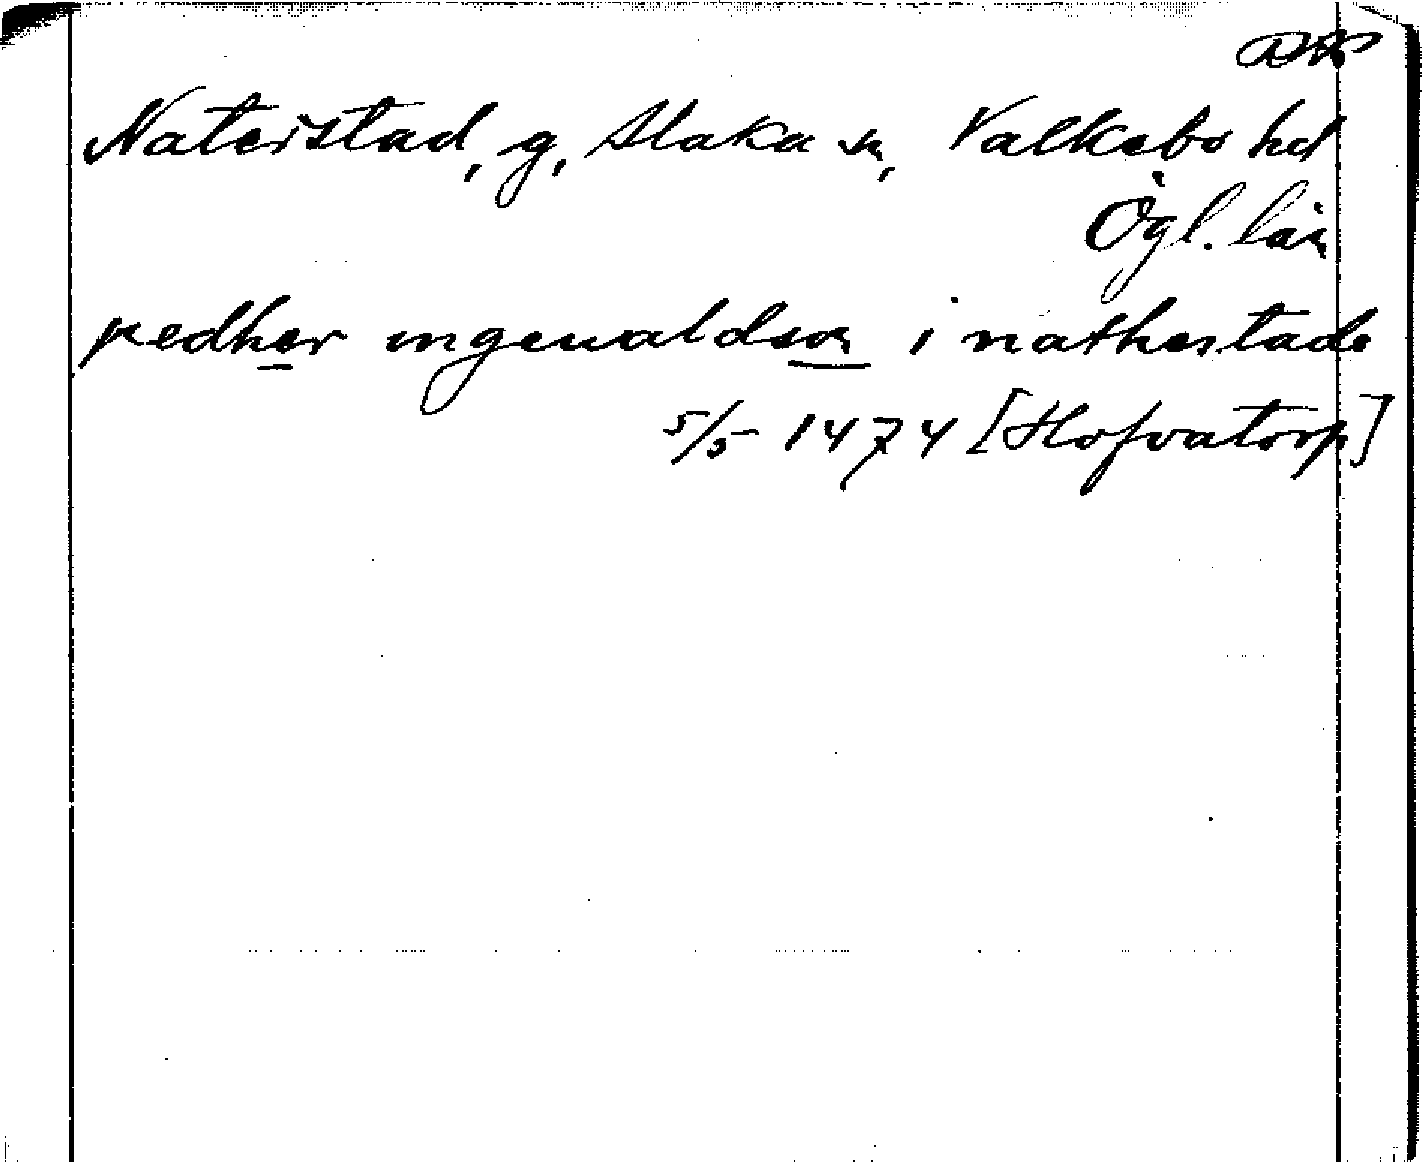 DR
Naterstad, g, Slaka sn, Valkebo hd
Ögl. län
pedher ingeualdson i nathestade
5/5 1474 [Hofvatorp]